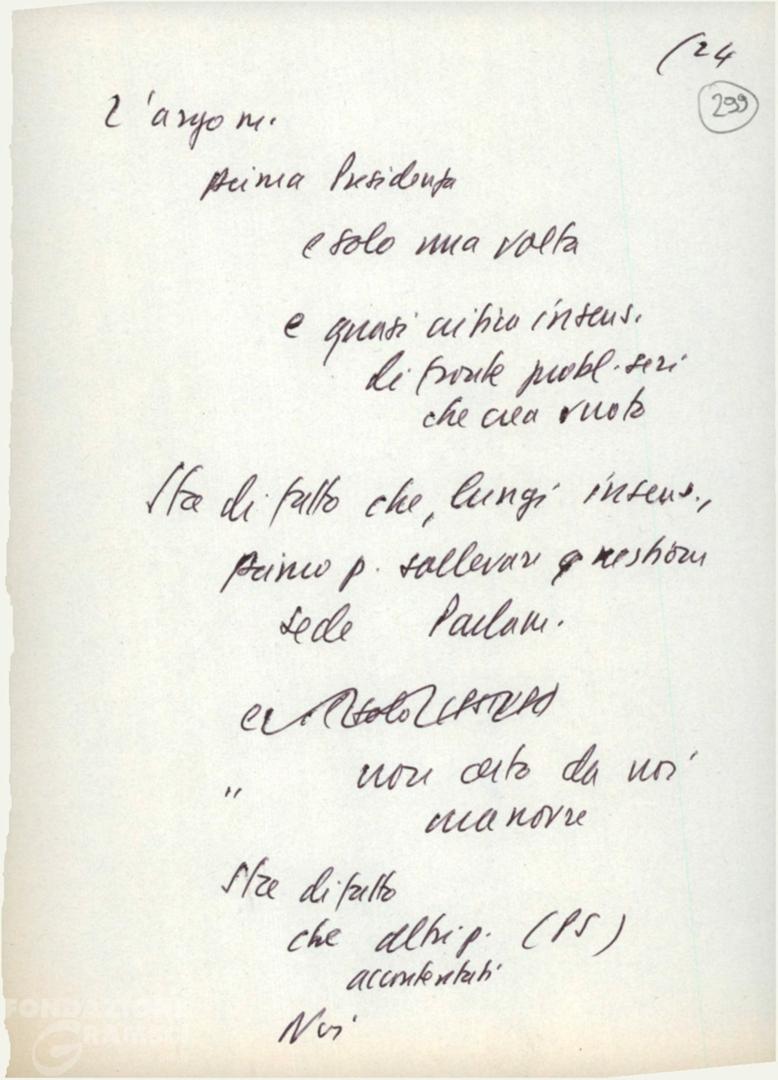 (24
299
L'argom.
prima Presidenza
e solo una volta
e quasi critica insens.
di fronte probl. seri
che crea vuoto
Sta di fatto che, lungi insens.,
primo p. sollevare questione
sede Parlam.
non certo da noi
"
manovre
Sta di fatto
che altri p. (PS)
accontentati
Noi
FONDAZIONE
GRAMSCI